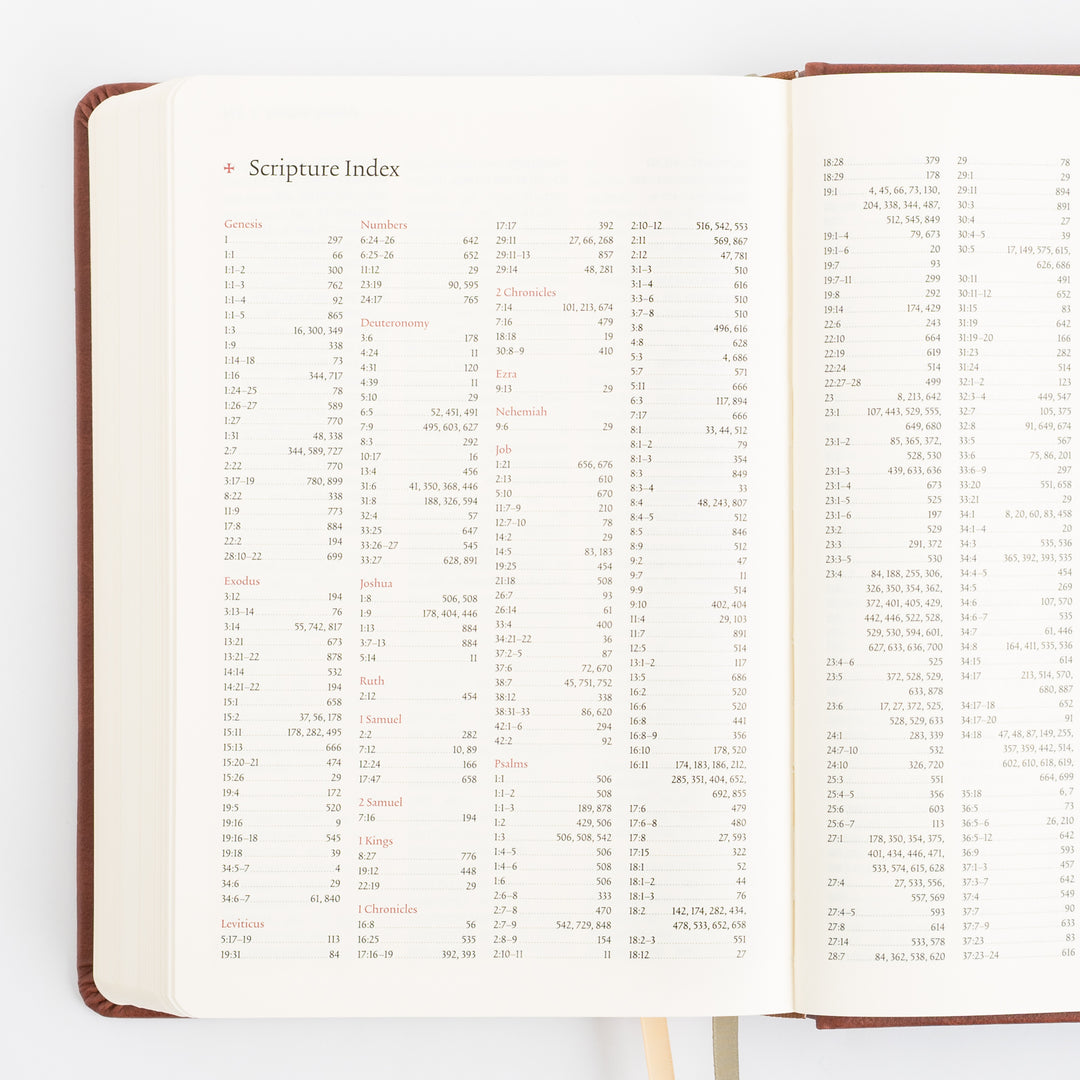 ✠ Scripture Index
Genesis
1 297
1:1 66
1:1–2 300
1:1–3 762
1:1–4 92
1:1–5 865
1:3 16, 300, 349
1:9 338
1:14–18 73
1:16 344, 717
1:24–25 78
1:26–27 589
1:27 770
1:31 48, 338
2:7 344, 589, 727
2:22 770
3:17–19 780, 899
8:22 338
11:9 773
17:8 884
22:2 194
28:10–22 699
Exodus
3:12 194
3:13–14 76
3:14 55, 742, 817
13:21 673
13:21–22 878
14:14 532
14:21–22 194
15:1 658
15:2 37, 56, 178
15:11 178, 282, 495
15:13 666
15:20–21 474
15:26 29
19:4 172
19:5 520
19:16 9
19:16–18 545
19:18 39
34:5–7 4
34:6 29
34:6–7 61, 840
Leviticus
5:17–19 113
19:31 84
Numbers
6:24–26 642
6:25–26 652
11:12 29
23:19 90, 595
24:17 765
Deuteronomy
3:6 178
4:24 11
4:31 120
4:39 11
5:10 29
6:5 52, 451, 491
7:9 495, 603, 627
8:3 292
10:17 16
13:4 456
31:6 41, 350, 368, 446
31:8 188, 326, 594
32:4 57
33:25 647
33:26–27 545
33:27 628, 891
Joshua
1:8 506, 508
1:9 178, 404, 446
1:13 884
3:7–13 884
5:14 11
Ruth
2:12 454
1 Samuel
2:2 282
7:12 10, 89
12:24 166
17:47 658
2 Samuel
7:16 194
1 Kings
8:27 776
19:12 448
22:19 29
1 Chronicles
16:8 56
16:25 535
17:16–19 392, 393
17:17 392
29:11 27, 66, 268
29:11–13 857
29:14 48, 281
2 Chronicles
7:14 101, 213, 674
7:16 479
18:18 19
30:8–9 410
Ezra
9:13 29
Nehemiah
9:6 29
Job
1:21 656, 676
2:13 610
5:10 670
11:7–9 210
12:7–10 78
14:2 29
14:5 83, 183
19:25 454
21:18 508
26:7 93
26:14 61
33:4 400
34:21–22 36
37:2–5 87
37:6 72, 670
38:7 45, 751, 752
38:12 338
38:31–33 86, 620
42:1–6 294
42:2 92
Psalms
1:1 506
1:1–2 508
1:1–3 189, 878
1:2 429, 506
1:3 506, 508, 542
1:4–5 506
1:4–6 508
1:6 506
2:6–8 333
2:7–8 470
2:7–9 542, 729, 848
2:8–9 154
2:10–11 11
2:10–12 516, 542, 553
2:11 569, 867
2:12 47, 781
3:1–3 510
3:1–4 616
3:3–6 510
3:7–8 510
3:8 496, 616
4:8 628
5:3 4, 686
5:7 571
5:11 666
6:3 117, 894
7:17 666
8:1 33, 44, 512
8:1–2 79
8:1–3 354
8:3 849
8:3–4 33
8:4 48, 243, 807
8:4–5 512
8:5 846
8:9 512
9:2 47
9:7 11
9:9 514
9:10 402, 404
11:4 29, 103
11:7 891
12:5 514
13:1–2 117
13:5 686
16:2 520
16:6 520
16:8 441
16:8–9 356
16:10 178, 520
16:11 174, 183, 186, 212,
285, 351, 404, 652,
692, 855
17:6 479
17:6–8 480
17:8 27, 593
17:15 322
18:1 52
18:1–2 44
18:1–3 76
18:2 142, 174, 282, 434,
478, 533, 652, 658
18:2–3 551
18:12 27
18:28 379
18:29 178
19:1 4, 45, 66, 73, 130,
204, 338, 344, 487,
512, 545, 849
19:1–4 79, 673
19:1–6 20
19:7 93
19:7–11 299
19:8 292
19:14 174, 429
22:6 243
22:10 664
22:19 619
22:24 514
22:27–28 499
23 8, 213, 642
23:1 107, 443, 529, 555,
649, 680
23:1–2 85, 365, 372,
528, 530
23:1–3 439, 633, 636
23:1–4 673
23:1–5 525
23:1–6 197
23:2 529
23:3 291, 372
23:3–5 530
23:4 84, 188, 255, 306,
326, 350, 354, 362,
372, 401, 405, 429,
442, 446, 522, 528,
529, 530, 594, 601,
627, 633, 636, 700
23:4–6 525
23:5 372, 528, 529,
633, 878
23:6 17, 27, 372, 525,
528, 529, 633
24:1 283, 339
24:7–10 532
24:10 326, 720
25:3 551
25:4–5 356
25:6 603
25:6–7 113
27:1 178, 350, 354, 375,
401, 434, 446, 471,
533, 574, 615, 628
27:4 27, 533, 556,
557, 569
27:4–5 593
27:8 614
27:14 533, 578
28:7 84, 362, 538, 620
29 78
29:1 29
29:11 894
30:3 891
30:4 27
30:4–5 39
30:5 17, 149, 575, 615,
626, 686
30:11 491
30:11–12 652
31:15 83
31:19 642
31:19–20 166
31:23 282
31:24 514
32:1–2 123
32:3–4 449, 547
32:7 105, 375
32:8 91, 649, 674
33:5 567
33:6 75, 86, 201
33:6–9 297
33:20 551, 658
33:21 29
34:1 8, 20, 60, 83, 458
34:1–4 20
34:3 535, 536
34:4 365, 392, 393, 535
34:4–5 454
34:5 269
34:6 107, 570
34:6–7 535
34:7 61, 446
34:8 164, 411, 535, 536
34:15 614
34:17 213, 514, 570,
680, 887
34:17–18 652
34:17–20 91
34:18 47, 48, 87, 149, 255,
357, 359, 442, 514,
602, 610, 618, 619,
664, 699
35:18 6, 7
36:5 73
36:5–6 26, 210
36:5–12 642
36:9 593
37:1–3 457
37:3–7 642
37:4 549
37:7 90
37:7–9 633
37:23 83
37:23–24 616